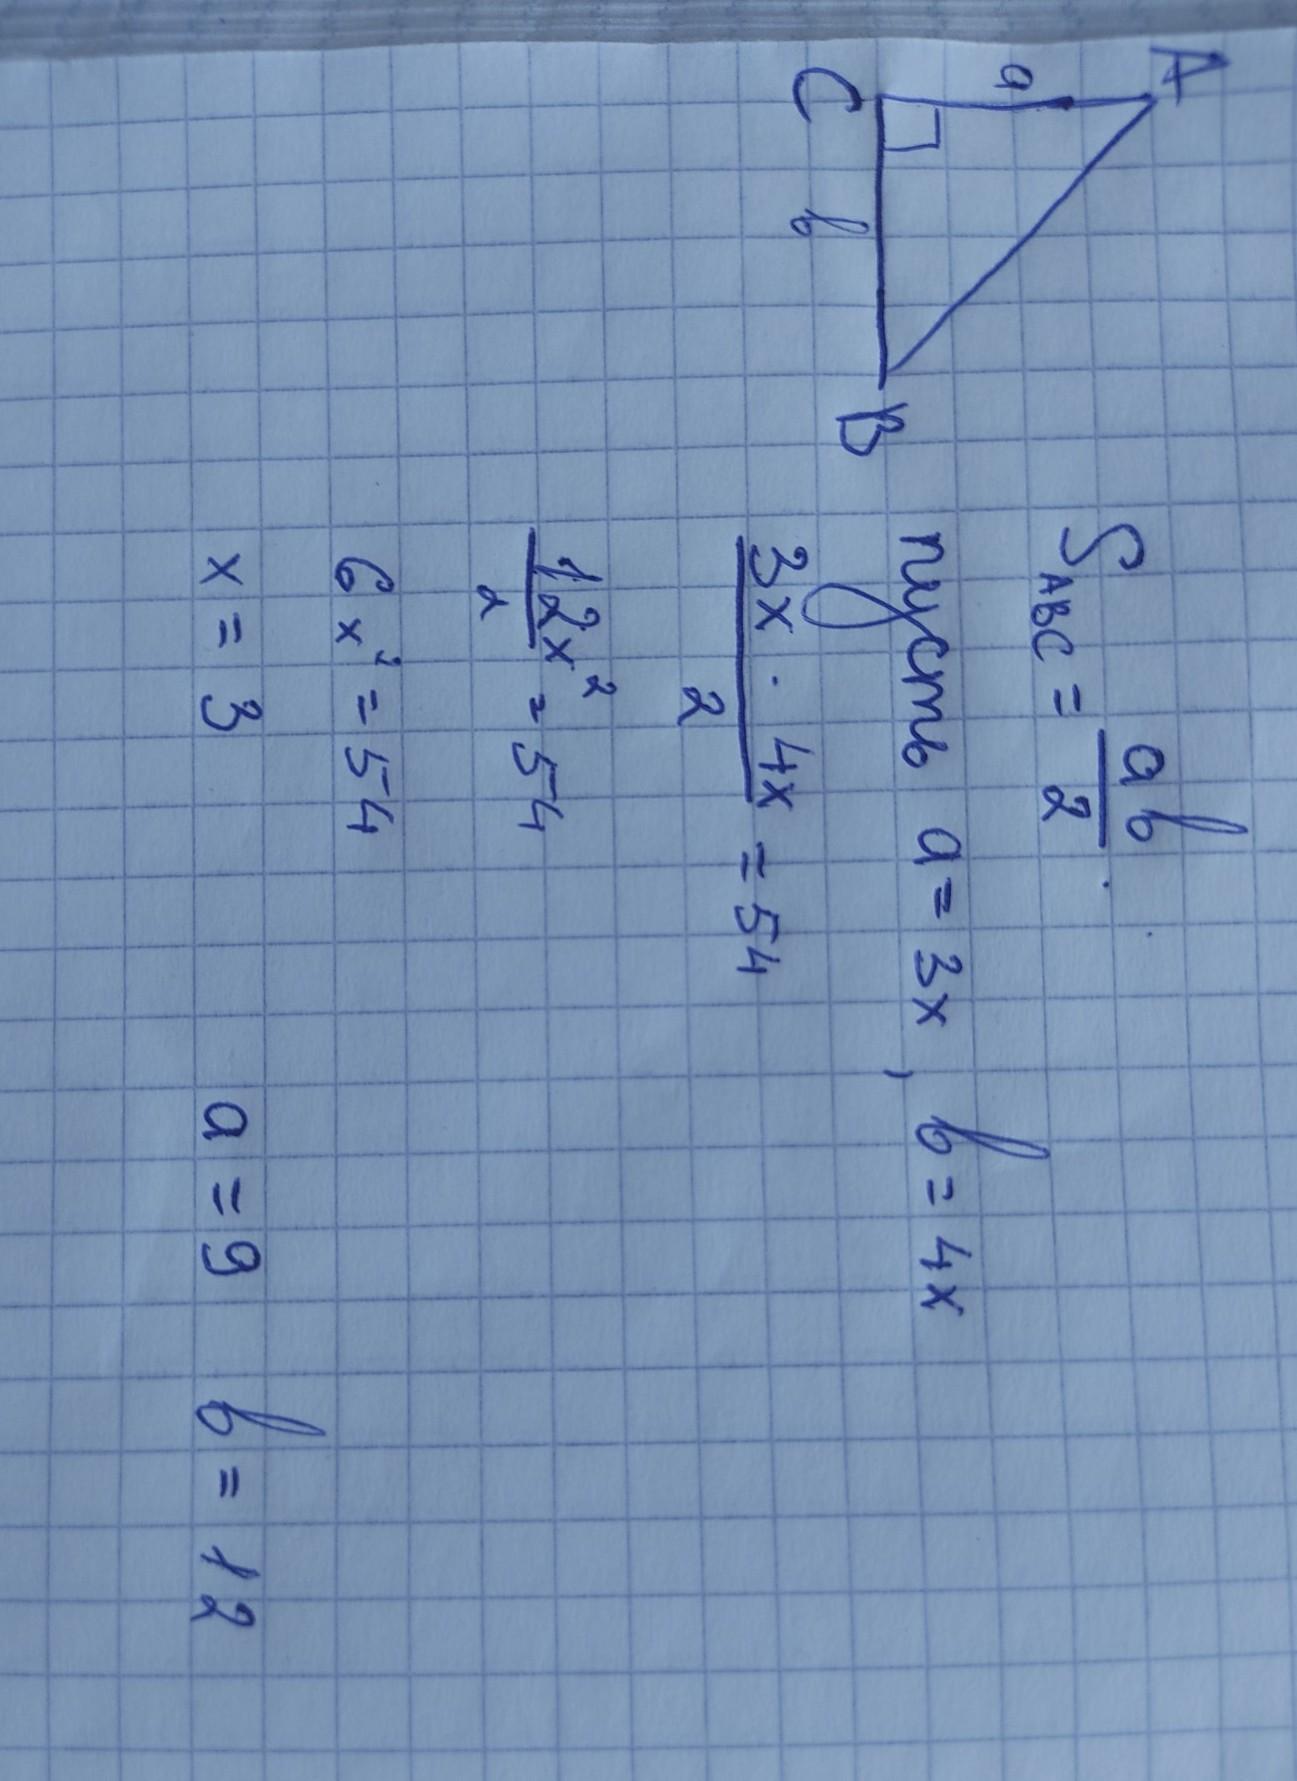 A
a
C
b
B
S_ABC = ab/2.
пусть a = 3x, b = 4x
3x · 4x / 2 = 54
12x² / 2 = 54
6x² = 54
x = 3   a = 9   b = 12